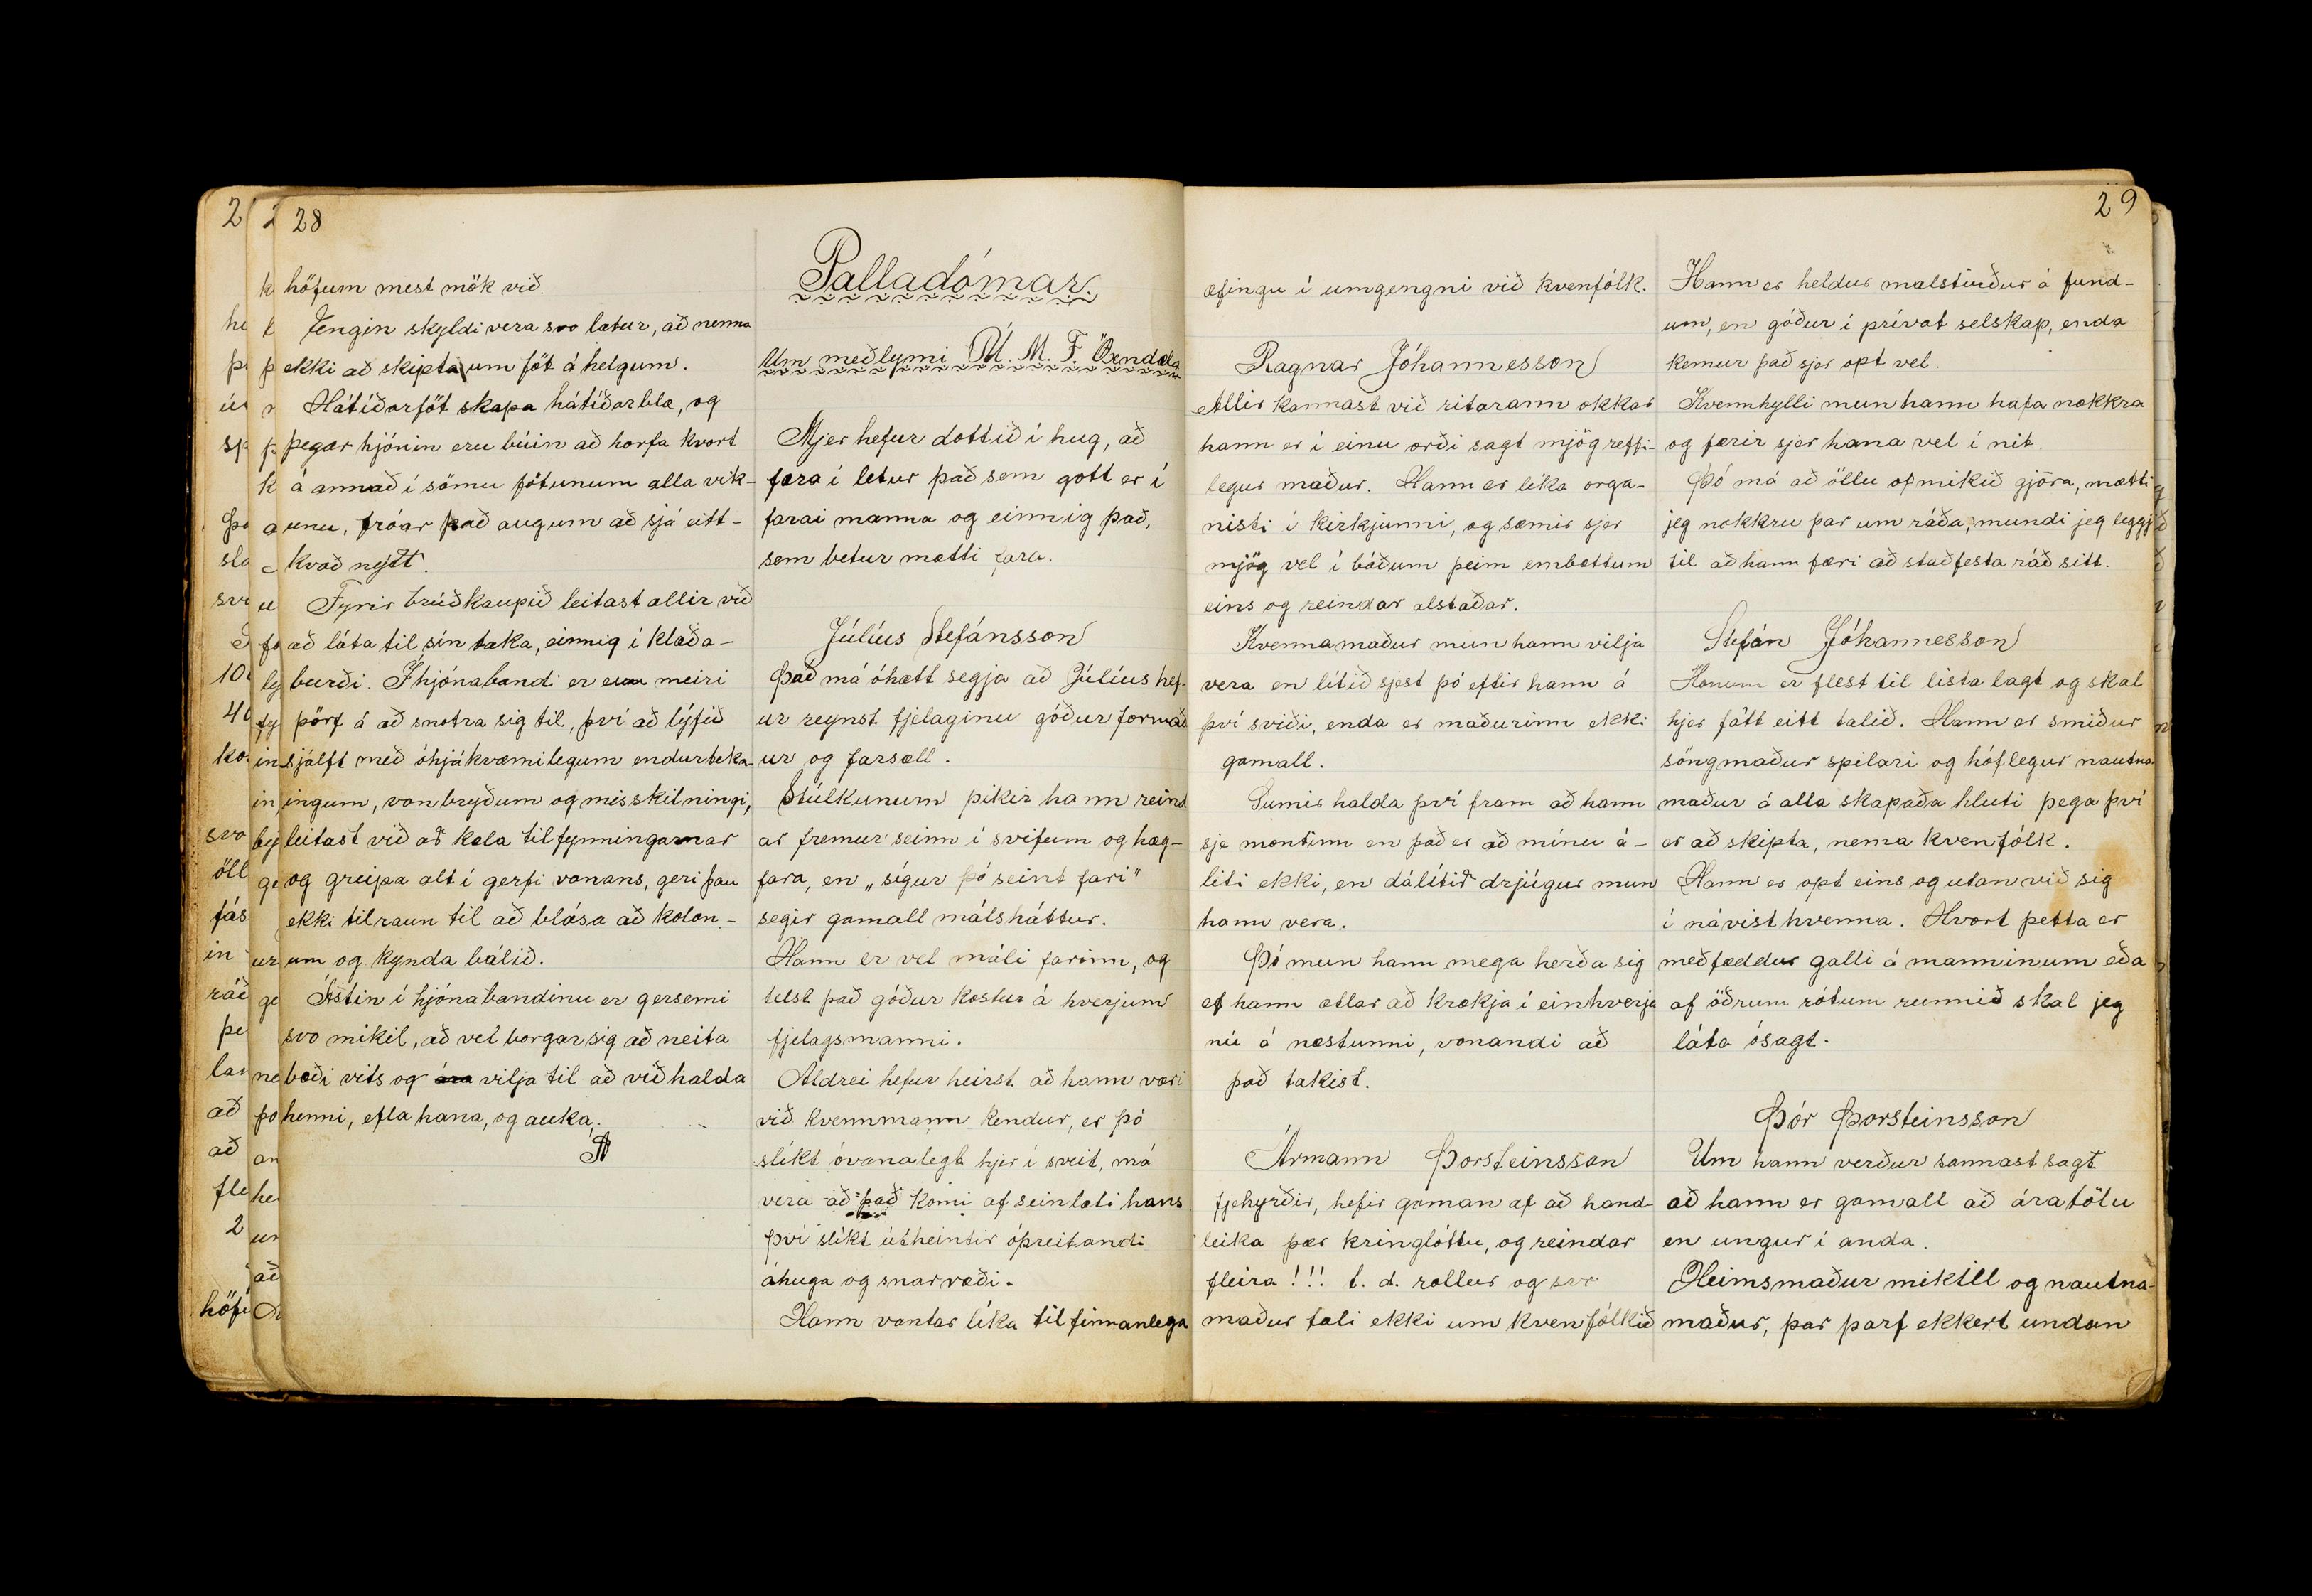 28
höfum mest mök við.
Eengin skyldi vera svo latur, að nenna
ekki að skipta um föt á helgum.
Hátíðarföt skapa hátíðarblæ, og
þegar hjónin eru búin að horfa kvort
á annað í sömu fötunum alla vik-
unu, fróar það augum að sjá eitt-
kvað nýtt.
Fyrir brúðkaupið leitast allir við
að láta til sín taka, einnig í klæða-
burði. Í hjónabandi er enn meiri
þörf á að snotra sig til, því að lýfið
sjálft með óhjákvæmilegum endurtekn-
ingum, vonbryðum og misskilningi,
leitast við að kæla tilfynningarnar
og greipa alt í gerfi vanans, geri þau
ekki tilraun til að blása að kolon-
um og kynda bálið.
Ástin í hjónabandinu er gersemi
svo mikil, að vel borgar sig að neita
bæði vits og ára vilja til að viðhalda
henni, efla hana, og auka.
Palladómar.
Um meðlymi U. M. F. Öxndæla
Mjer hefur dottið í hug, að
færa í letur það sem gott er í
farai manna og einnig það,
sem betur mætti fara.
Júlíus Stefánsson
Það má óhætt segja að Júlíus hef-
ur reynst fjelaginu góður formað
ur og farsæll.
Stúlkunum þikir hann reind
ar fremur seinn í svifum og hæg-
fara, en „sígur þó seint fari"
segir gamall málsháttur.
Hann er vel máli farinn, og
telst það góður kostur á hverjum
fjelagsmanni.
Aldrei hefur heirst að hann væri
við kvennmann kendur, er þó
slíkt óvanalegt hjer í sveit, má
vera að það komi af seinlæti hans
því slíkt útheimtir óþreitandi
áhuga og snarræði.
Hann vantar líka tilfinnanlega
29
æfingu í umgengni við kvenfólk.
Ragnar Jóhannesson
Allir kannast við ritarann okkar
hann er í einu orði sagt mjög reffi-
legur maður. Hann er líka orga-
nisti í kirkjunni, og sæmir sjer
mjög vel í báðum þeim embættum
eins og reindar alstaðar.
Kvennamaður mun hann vilja
vera en lítið sjest þó eftir hann á
því sviði, enda er maðurinn ekki
gamall.
Sumir halda því fram að hann
sje montinn en það er að mínu á-
liti ekki, en dálítið drjúgur mun
hann vera.
Þó mun hann mega herða sig
ef hann ætlar að krækja í einhverja
nú á næstunni, vonandi að
það takist.
Ármann Þorsteinsson
fjehyrðir, hefir gaman af að hand-
leika þær kringlóttu, og reindar
fleira!!! t.d. rollur og svo
maður tali ekki um kvenfólkið
Hann er heldur malstirður á fund-
um, en góður í prívat selskap, enda
kemur það sjer opt vel.
Kvennhylli mun hann hafa nokkra
og færir sjer hana vel í nit.
Þó má að öllu ofmikið gjöra, mætti
jeg nokkru þar um ráða, mundi jeg leggja
til að hann færi að staðfesta ráð sitt.
Stefán Jóhannesson
Honum er flest til lista lagt og skal
hjer fátt eitt talið. Hann er smiður
söngmaður spilari og hóflegur nautna-
maður á alla skapaða hluti þega því
er að skipta, nema kvenfólk.
Hann er opt eins og utan við sig
í návist hvenna. Hvort þetta er
meðfæddur galli á manninum eða
af öðrum rótum runnið skal jeg
láta ósagt.
Þór Þorsteinsson
Um hann verður sannast sagt
að hann er gamall að áratölu
en ungur í anda.
Heimsmaður mikill og nautna-
maður, þar þarf ekkert undan